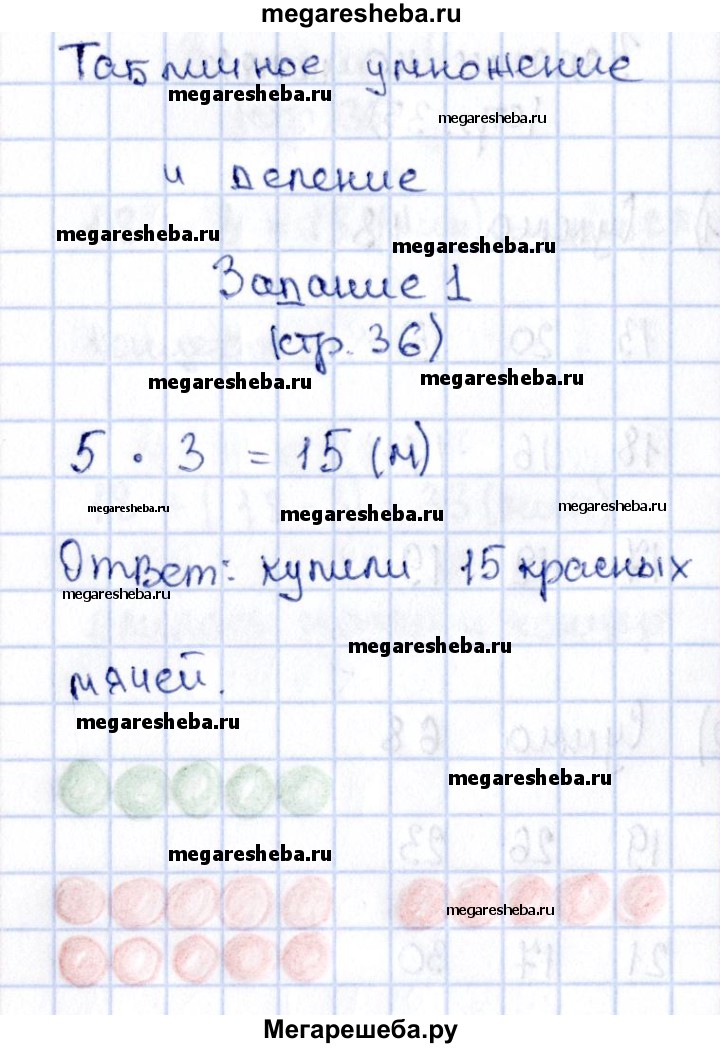 megaresheba.ru
Табличное умножение
megaresheba.ru
megaresheba.ru
и деление
megaresheba.ru
megaresheba.ru
Задание 1
(стр. 36)
megaresheba.ru
megaresheba.ru
5 · 3 = 15 (м)
megaresheba.ru
megaresheba.ru
megaresheba.ru
Ответ: купили 15 красных
megaresheba.ru
megaresheba.ru
мячей.
megaresheba.ru
megaresheba.ru
megaresheba.ru
megaresheba.ru
Мегарешеба.ру